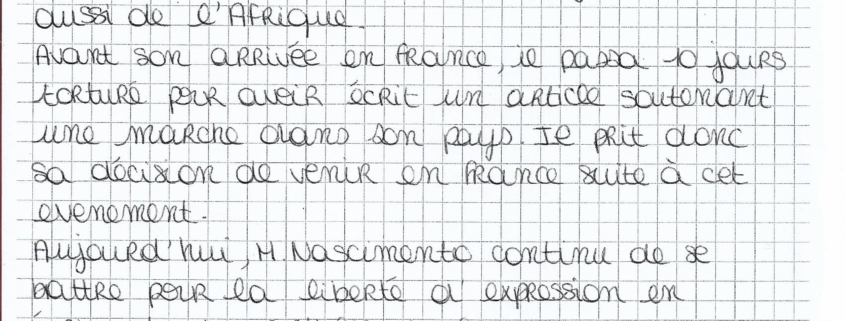 aussi de l'Afrique.
Avant son arrivée en France, il passa 10 jours
torturé pour avoir écrit un article soutenant
une marche dans son pays. Il prit donc
sa décision de venir en France suite à cet
evenement.
Aujourd'hui, M. Nascimento continu de se
battre pour la liberté d'expression en